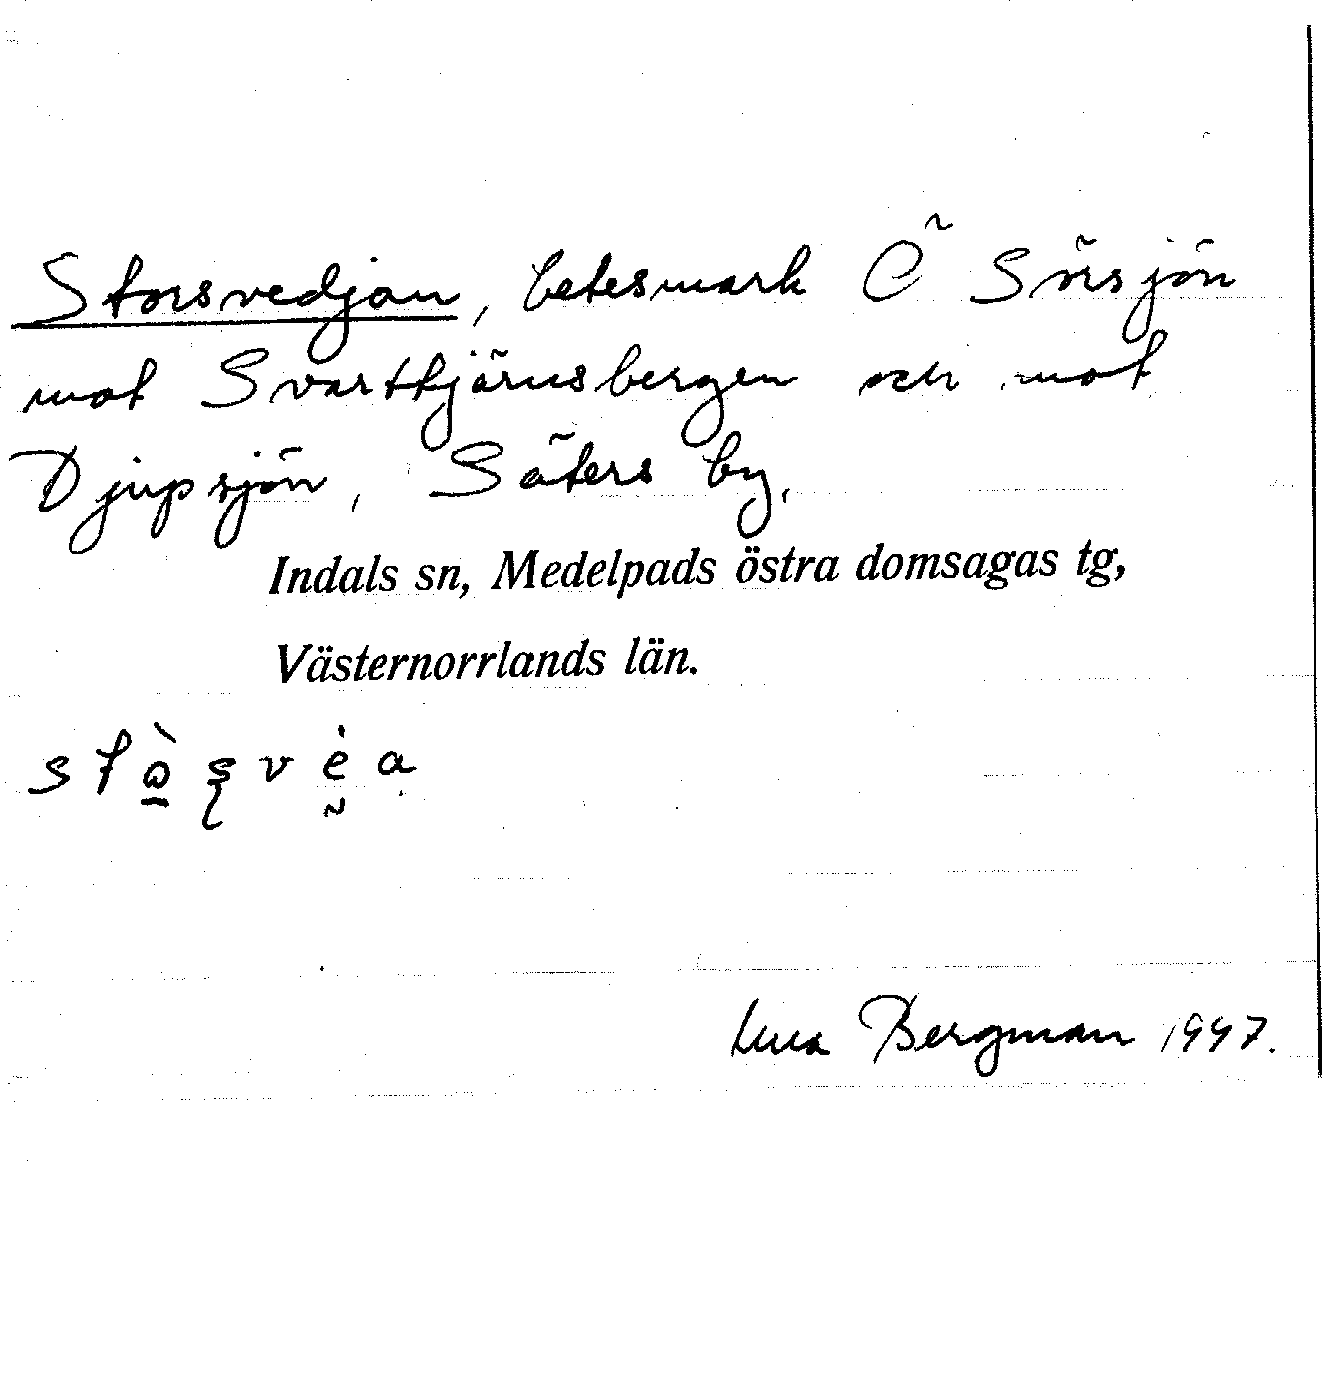 Storsvedjan, betesmark Ö Sörsjön
mot Svarttjärnsbergen och mot
Djupsjön, Säters by.
Indals sn, Medelpads östra domsagas tg,
Västernorrlands län.
Bergman 1997.